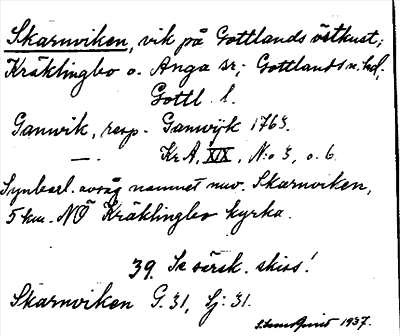 Skarnviken, vik på Gottlands östkust;
Kräklingbo o. Anga sr; Gottlands n. hd.
Gottl. l.
Ganwik, resp. Ganwÿk 1763.
—. Kr A, XIX, N:o 3, o. 6.
Synbarl. avsåg namnet nuv. Skarnviken,
5 km. NÖ Kräklingbo kyrka.
39. Se särsk. skiss!
Skarnviken G. 31, Sj. 31.
1937.